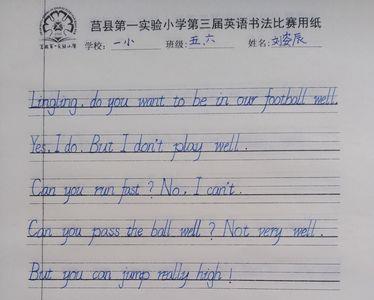 莒县第一实验小学第三届英语书法比赛用纸
学校: 一小 班级: 五.六 姓名: 刘姿辰
Lingling, do you want to be in our football well.
Yes, I do. But I don't play well.
Can you run fast? No, I can't.
Can you pass the ball well? Not very well.
But you can jump really high!